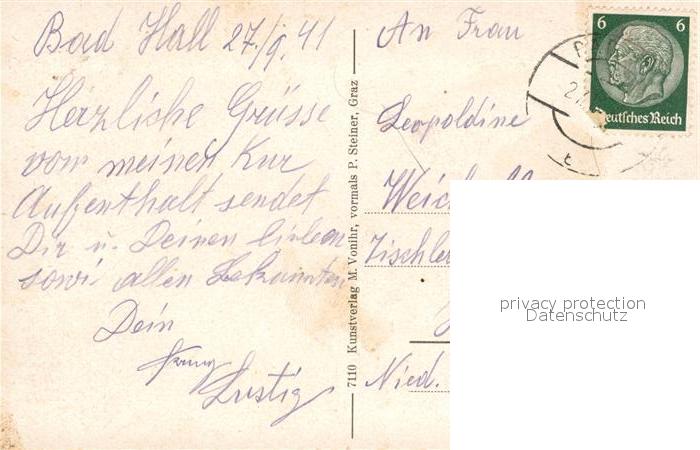 Bad Hall 27./9. 41
Herzliche Grüsse
von meinen Kur
Aufenthalt sendet
Dir u. Deinen lieben
sowi allen Bekannten
Dein
Lustig
7110 Kunstverlag M. Vonihr, vormals P. Steiner, Graz
An Frau
Leopoldine
Nied.
6 6
Deutsches Reich
privacy protection
Datenschutz